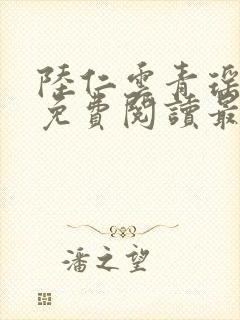 陸仁雲青瑶
免費閱讀最
潘之望